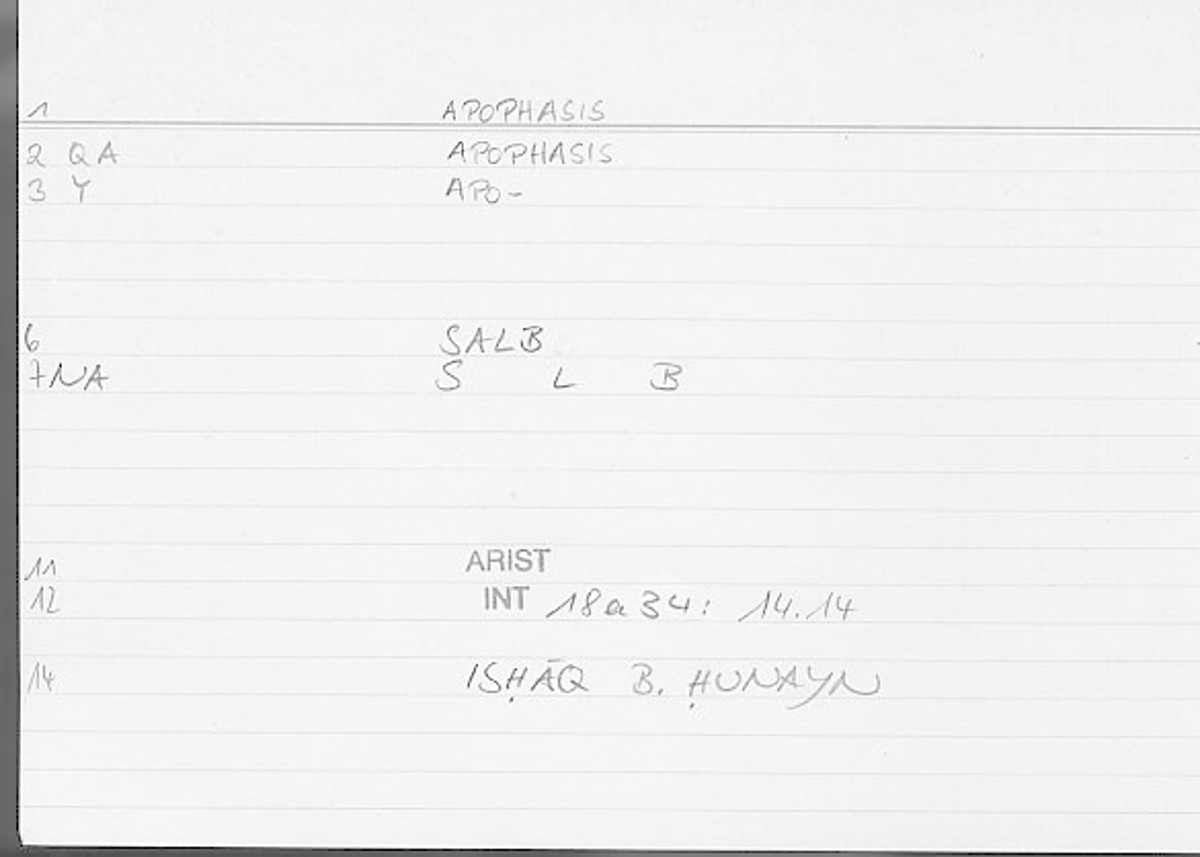 1 APOPHASIS
2 QA APOPHASIS
3 Y APO-
6 SALB
7NA S L B
11 ARIST
12 INT 18a34: 14.14
14 ISḤĀQ B. ḤUNAYN